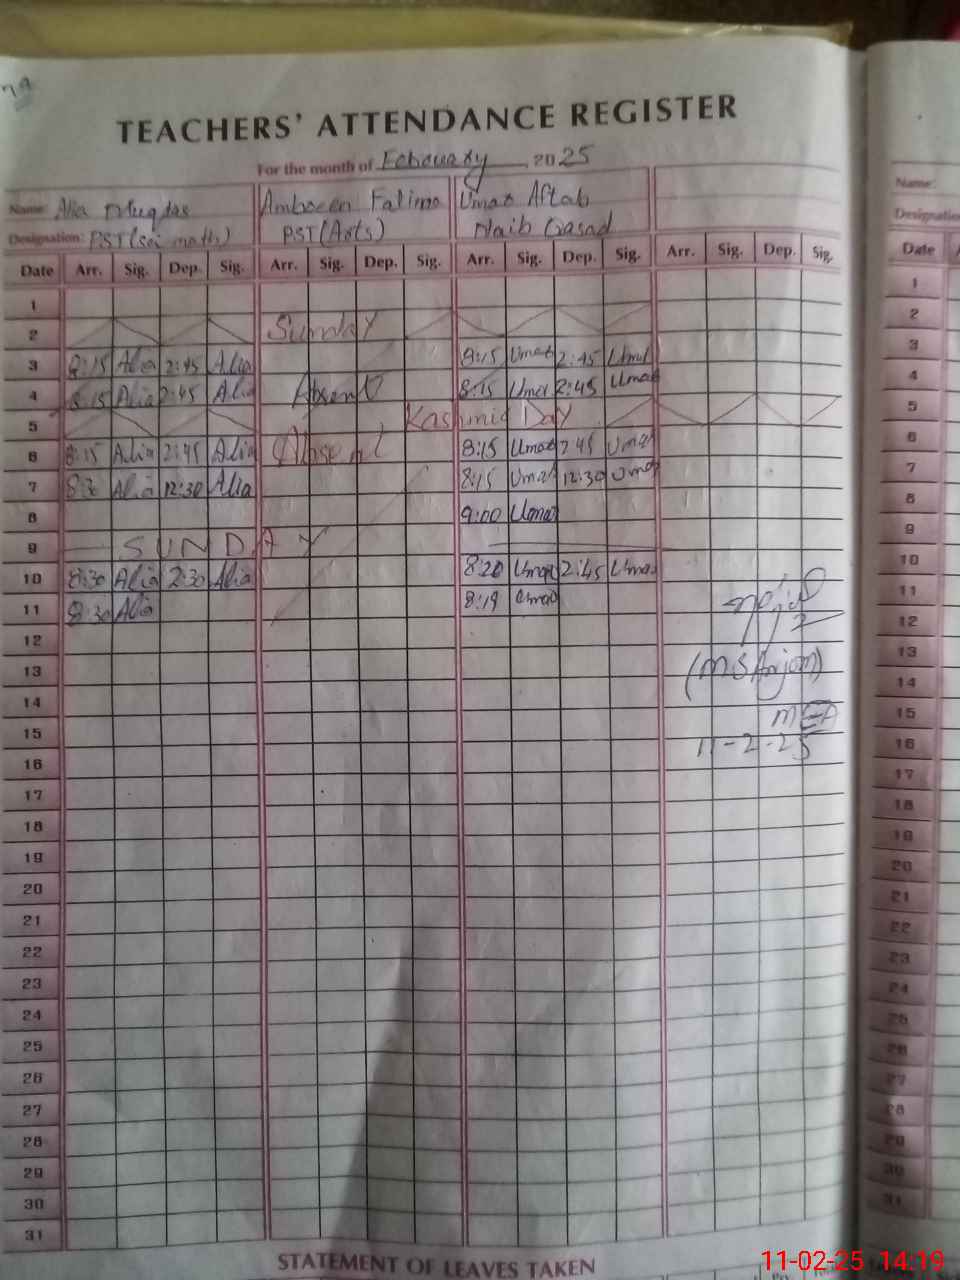 TEACHERS' ATTENDANCE REGISTER
For the month of February 2025
Name: Alia Muqdas Ambreen Fatima Umar Aftab
Designation: PST(Sci math) PST(Arts) Naib Qasad
Date Arr. Sig. Dep. Sig. Arr. Sig. Dep. Sig. Arr. Sig. Dep. Sig. Arr. Sig. Dep. Sig.
1
2 Sunday
3 8:15 Alia 2:45 Alia 8:15 Umar 2:45 Umar
4 8:15 Alia 2:45 Alia Absent 8:15 Umar 2:45 Umar
5 Kashmir Day
6 8:15 Alia 2:45 Alia Absent 8:15 Umar 2:45 Umar
7 8:30 Alia 12:30 Alia 8:15 Umar 12:30 Umar
8 9:00 Umar
9 SUNDAY
10 8:30 Alia 2:30 Alia 8:20 Umar 2:45 Umar
11 8:30 Alia 8:19 Umar
12
13 (MS Anjom)
14
15 MEA
16 11-2-25
17
18
19
20
21
22
23
24
25
26
27
28
29
30
31
STATEMENT OF LEAVES TAKEN
Name:
Designation
Date
1
2
3
4
5
6
7
8
9
10
11
12
13
14
15
16
17
18
19
20
21
22
23
24
25
26
27
28
29
30
31
11-02-25 14:19